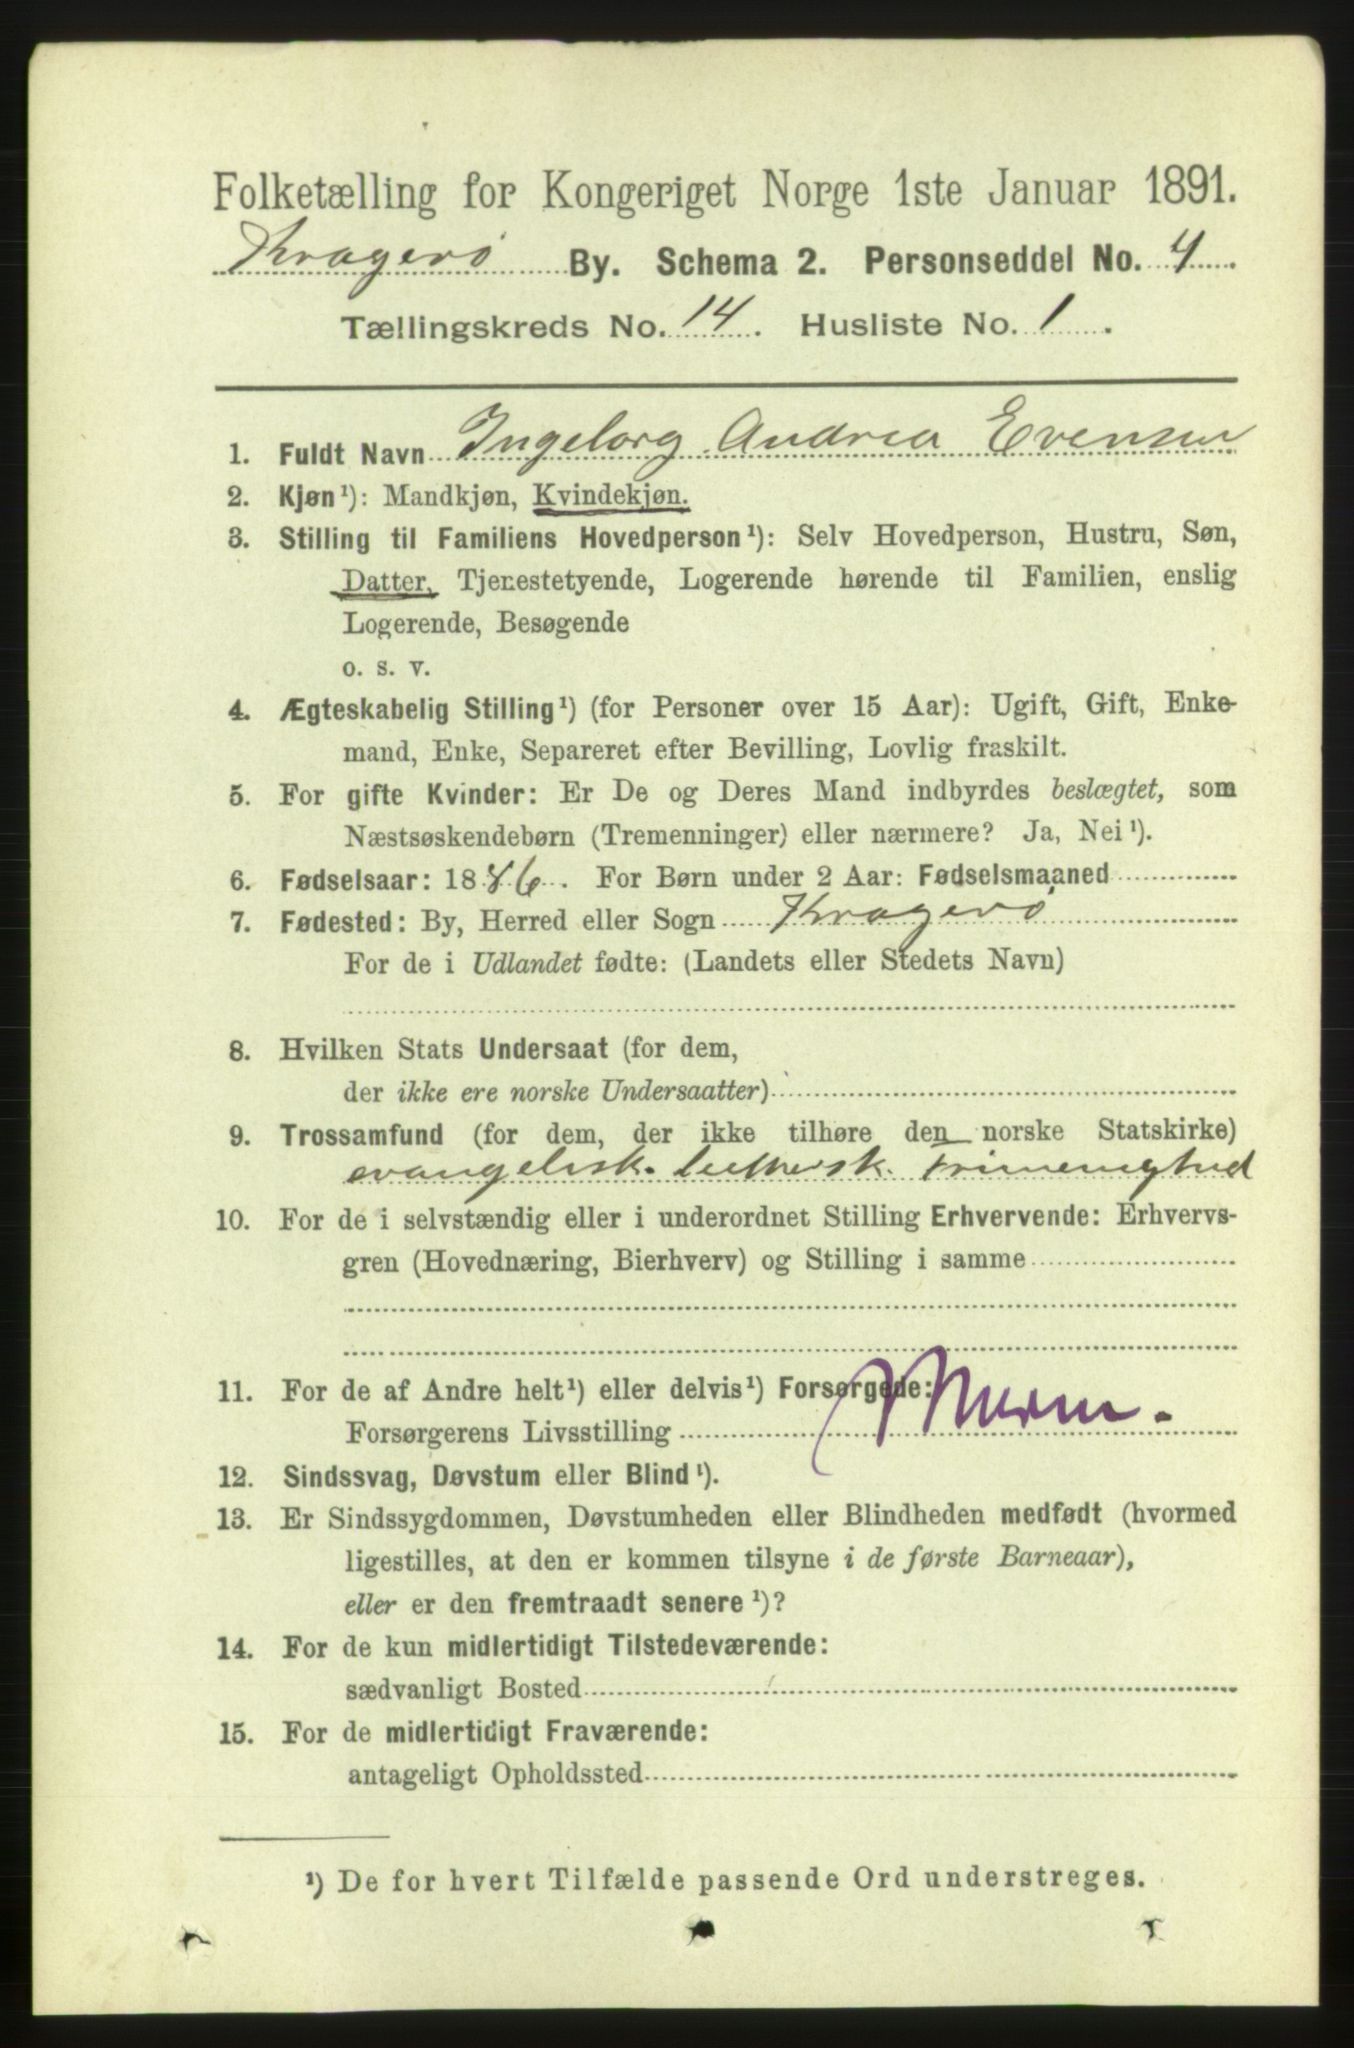 Folketælling for Kongeriget Norge 1ste Januar 1891.
Kragerø By. Schema 2. Personseddel No. 4
Tællingskreds No. 14. Husliste No. 1.
1. Fuldt Navn Ingeborg Andrea Evensen
2. Kjøn¹): Mandkjøn, Kvindekjøn.
3. Stilling til Familiens Hovedperson¹): Selv Hovedperson, Hustru, Søn,
Datter, Tjenestetyende, Logerende hørende til Familien, enslig
Logerende, Besøgende
o. s. v.
4. Ægteskabelig Stilling¹) (for Personer over 15 Aar): Ugift, Gift, Enke-
mand, Enke, Separeret efter Bevilling, Lovlig fraskilt.
5. For gifte Kvinder: Er De og Deres Mand indbyrdes beslægtet, som
Næstsøskendebørn (Tremenninger) eller nærmere? Ja, Nei¹).
6. Fødselsaar: 1886. For Børn under 2 Aar: Fødselsmaaned
7. Fødested: By, Herred eller Sogn Kragerø
For de i Udlandet fødte: (Landets eller Stedets Navn)
8. Hvilken Stats Undersaat (for dem,
der ikke ere norske Undersaatter)
9. Trossamfund (for dem, der ikke tilhøre den norske Statskirke)
evangelisk luthersk frimenighed
10. For de i selvstændig eller i underordnet Stilling Erhvervende: Erhvervs-
gren (Hovednæring, Bierhverv) og Stilling i samme
11. For de af Andre helt¹) eller delvis¹) Forsørgede:
Forsørgerens Livsstilling
12. Sindssvag, Døvstum eller Blind¹).
13. Er Sindssygdommen, Døvstumheden eller Blindheden medfødt (hvormed
ligestilles, at den er kommen tilsyne i de første Barneaar),
eller er den fremtraadt senere¹)?
14. For de kun midlertidigt Tilstedeværende:
sædvanligt Bosted
15. For de midlertidigt Fraværende:
antageligt Opholdssted
¹) De for hvert Tilfælde passende Ord understreges.